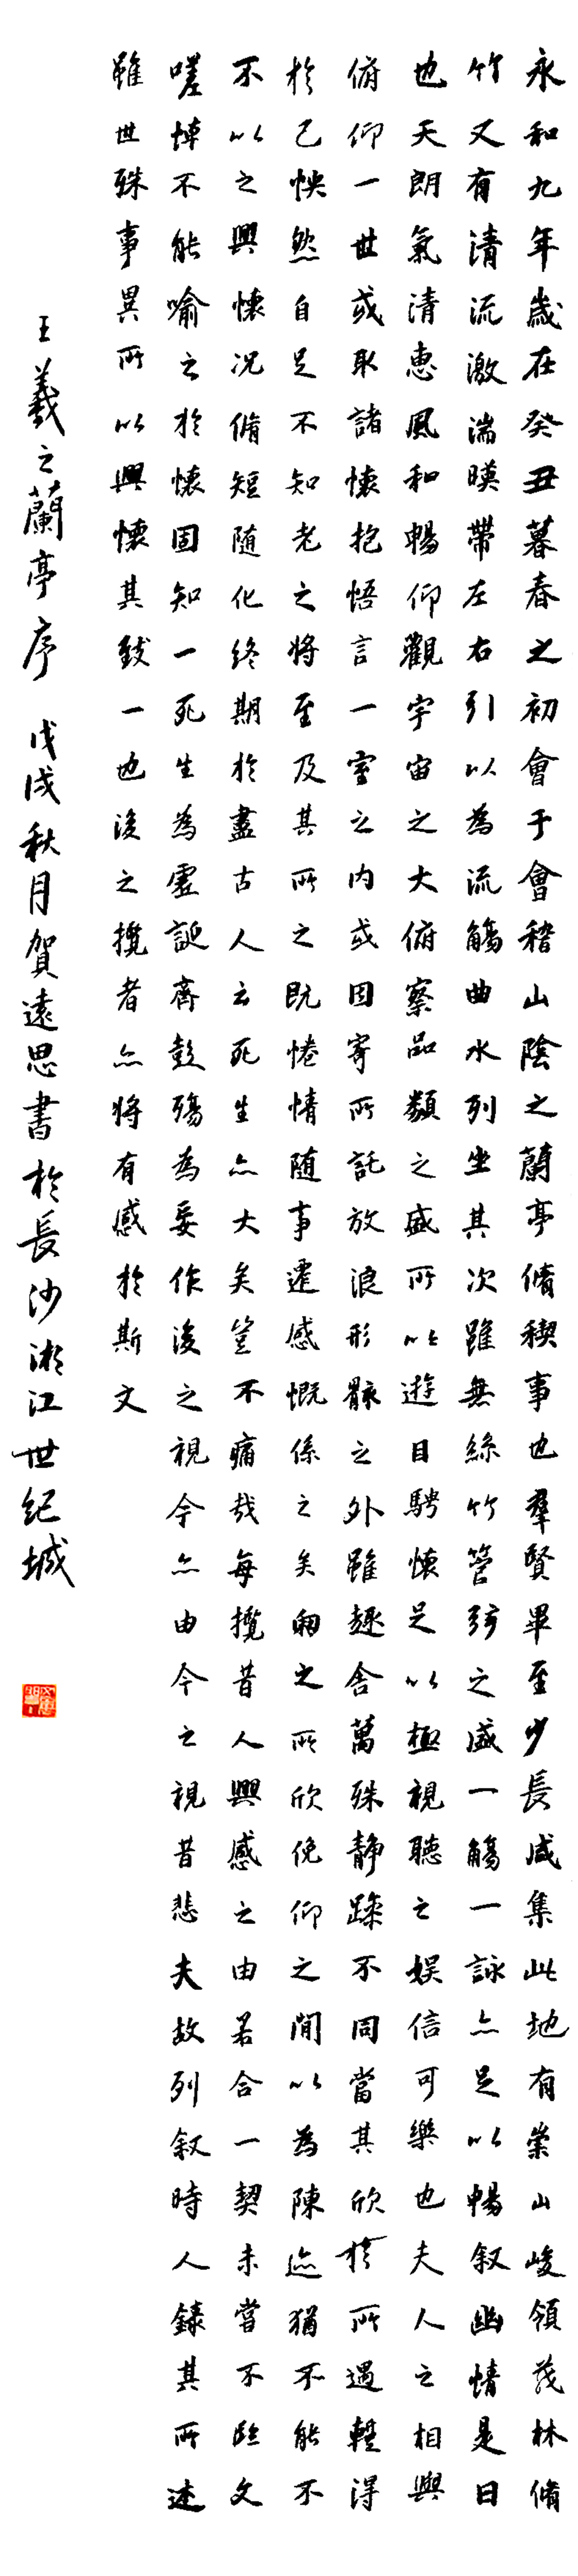 永和九年歲在癸丑暮春之初會于會稽山陰之蘭亭脩稧事也羣賢畢至少長咸集此地有崇山峻領茂林脩
竹又有清流激湍暎帶左右引以為流觴曲水列坐其次雖無絲竹管弦之盛一觴一詠亦足以暢叙幽情是日
也天朗氣清惠風和暢仰觀宇宙之大俯察品類之盛所以遊目騁懷足以極視聽之娱信可樂也夫人之相與
俯仰一世或取諸懷抱悟言一室之内或因寄所託放浪形骸之外雖趣舍萬殊静躁不同當其欣於所遇蹔得
於己怏然自足不知老之將至及其所之既惓情随事遷感慨係之矣向之所欣俛仰之閒以為陳迹猶不能不
不以之興懷况脩短随化終期於盡古人云死生亦大矣豈不痛哉每攬昔人興感之由若合一契未嘗不臨文
嗟悼不能喻之於懷固知一死生為虛誕齊彭殤為妄作後之視今亦由今之視昔悲夫故列叙時人錄其所述
雖世殊事異所以興懷其致一也後之攬者亦將有感於斯文
王羲之蘭亭序 戊戌秋月賀遠思書於長沙湘江世紀城